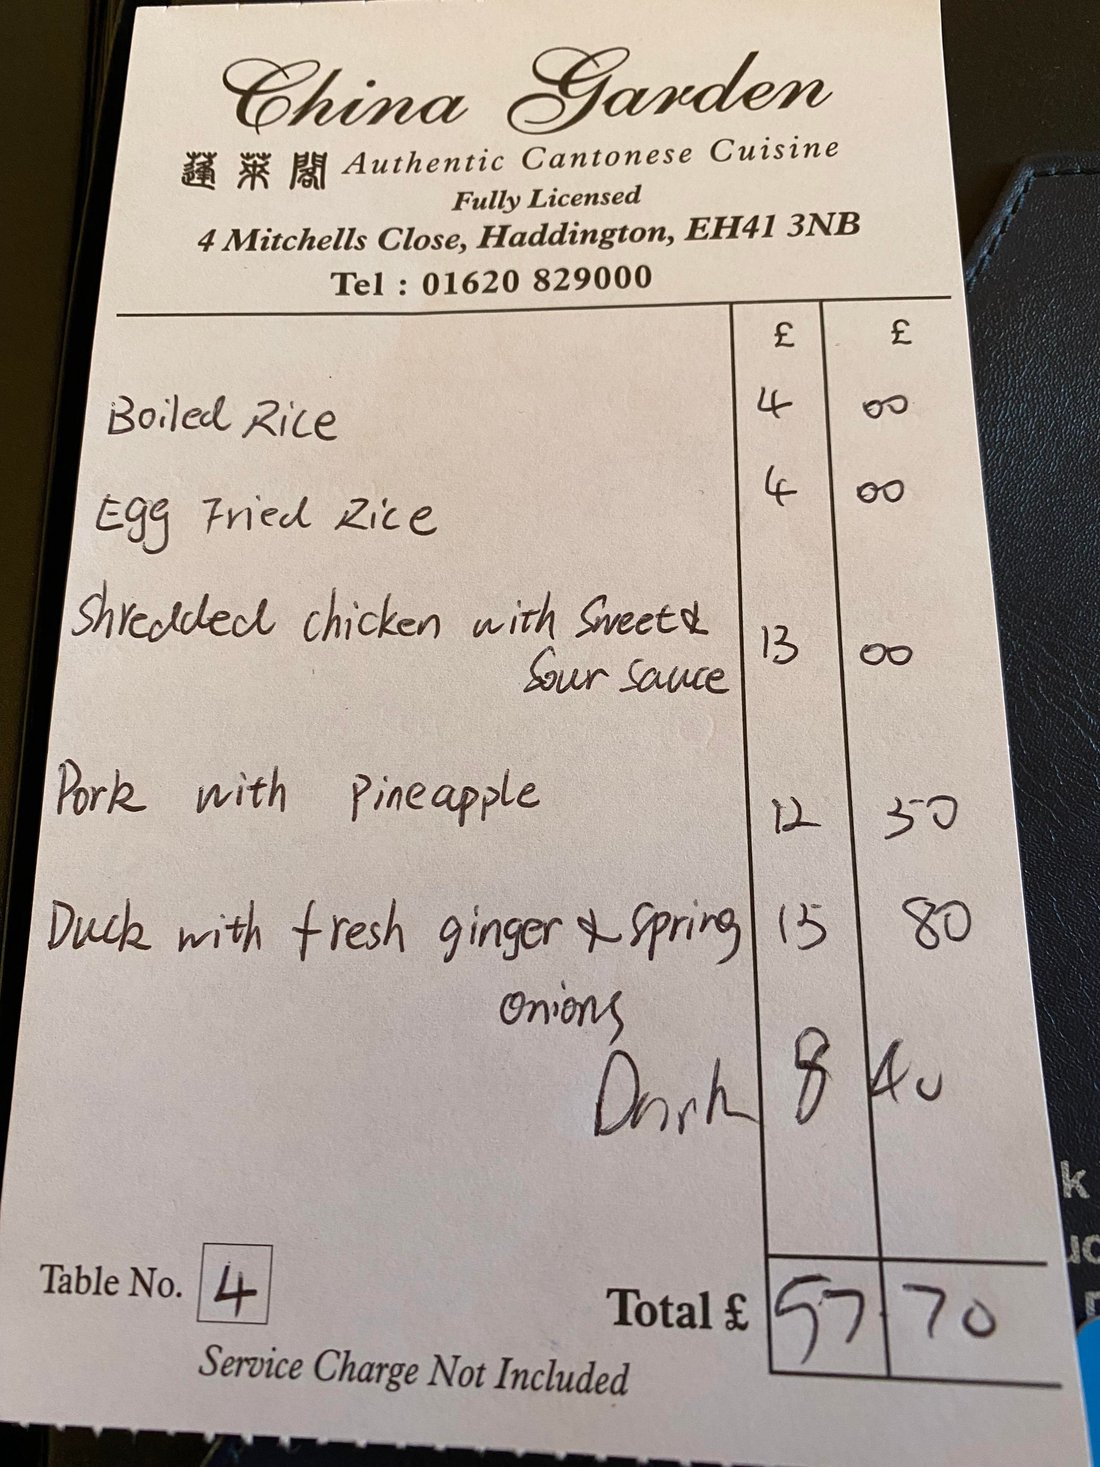 China Garden
蓬萊閣 Authentic Cantonese Cuisine
Fully Licensed
4 Mitchells Close, Haddington, EH41 3NB
Tel : 01620 829000
£ £
Boiled Rice 4 00
Egg Fried Rice 4 00
Shredded chicken with Sweet &
Sour Sauce 13 00
Pork with Pineapple 12 50
Duck with fresh ginger & spring 15 80
onions
8 40
Table No. 4 Total £ 57.70
Service Charge Not Included
k